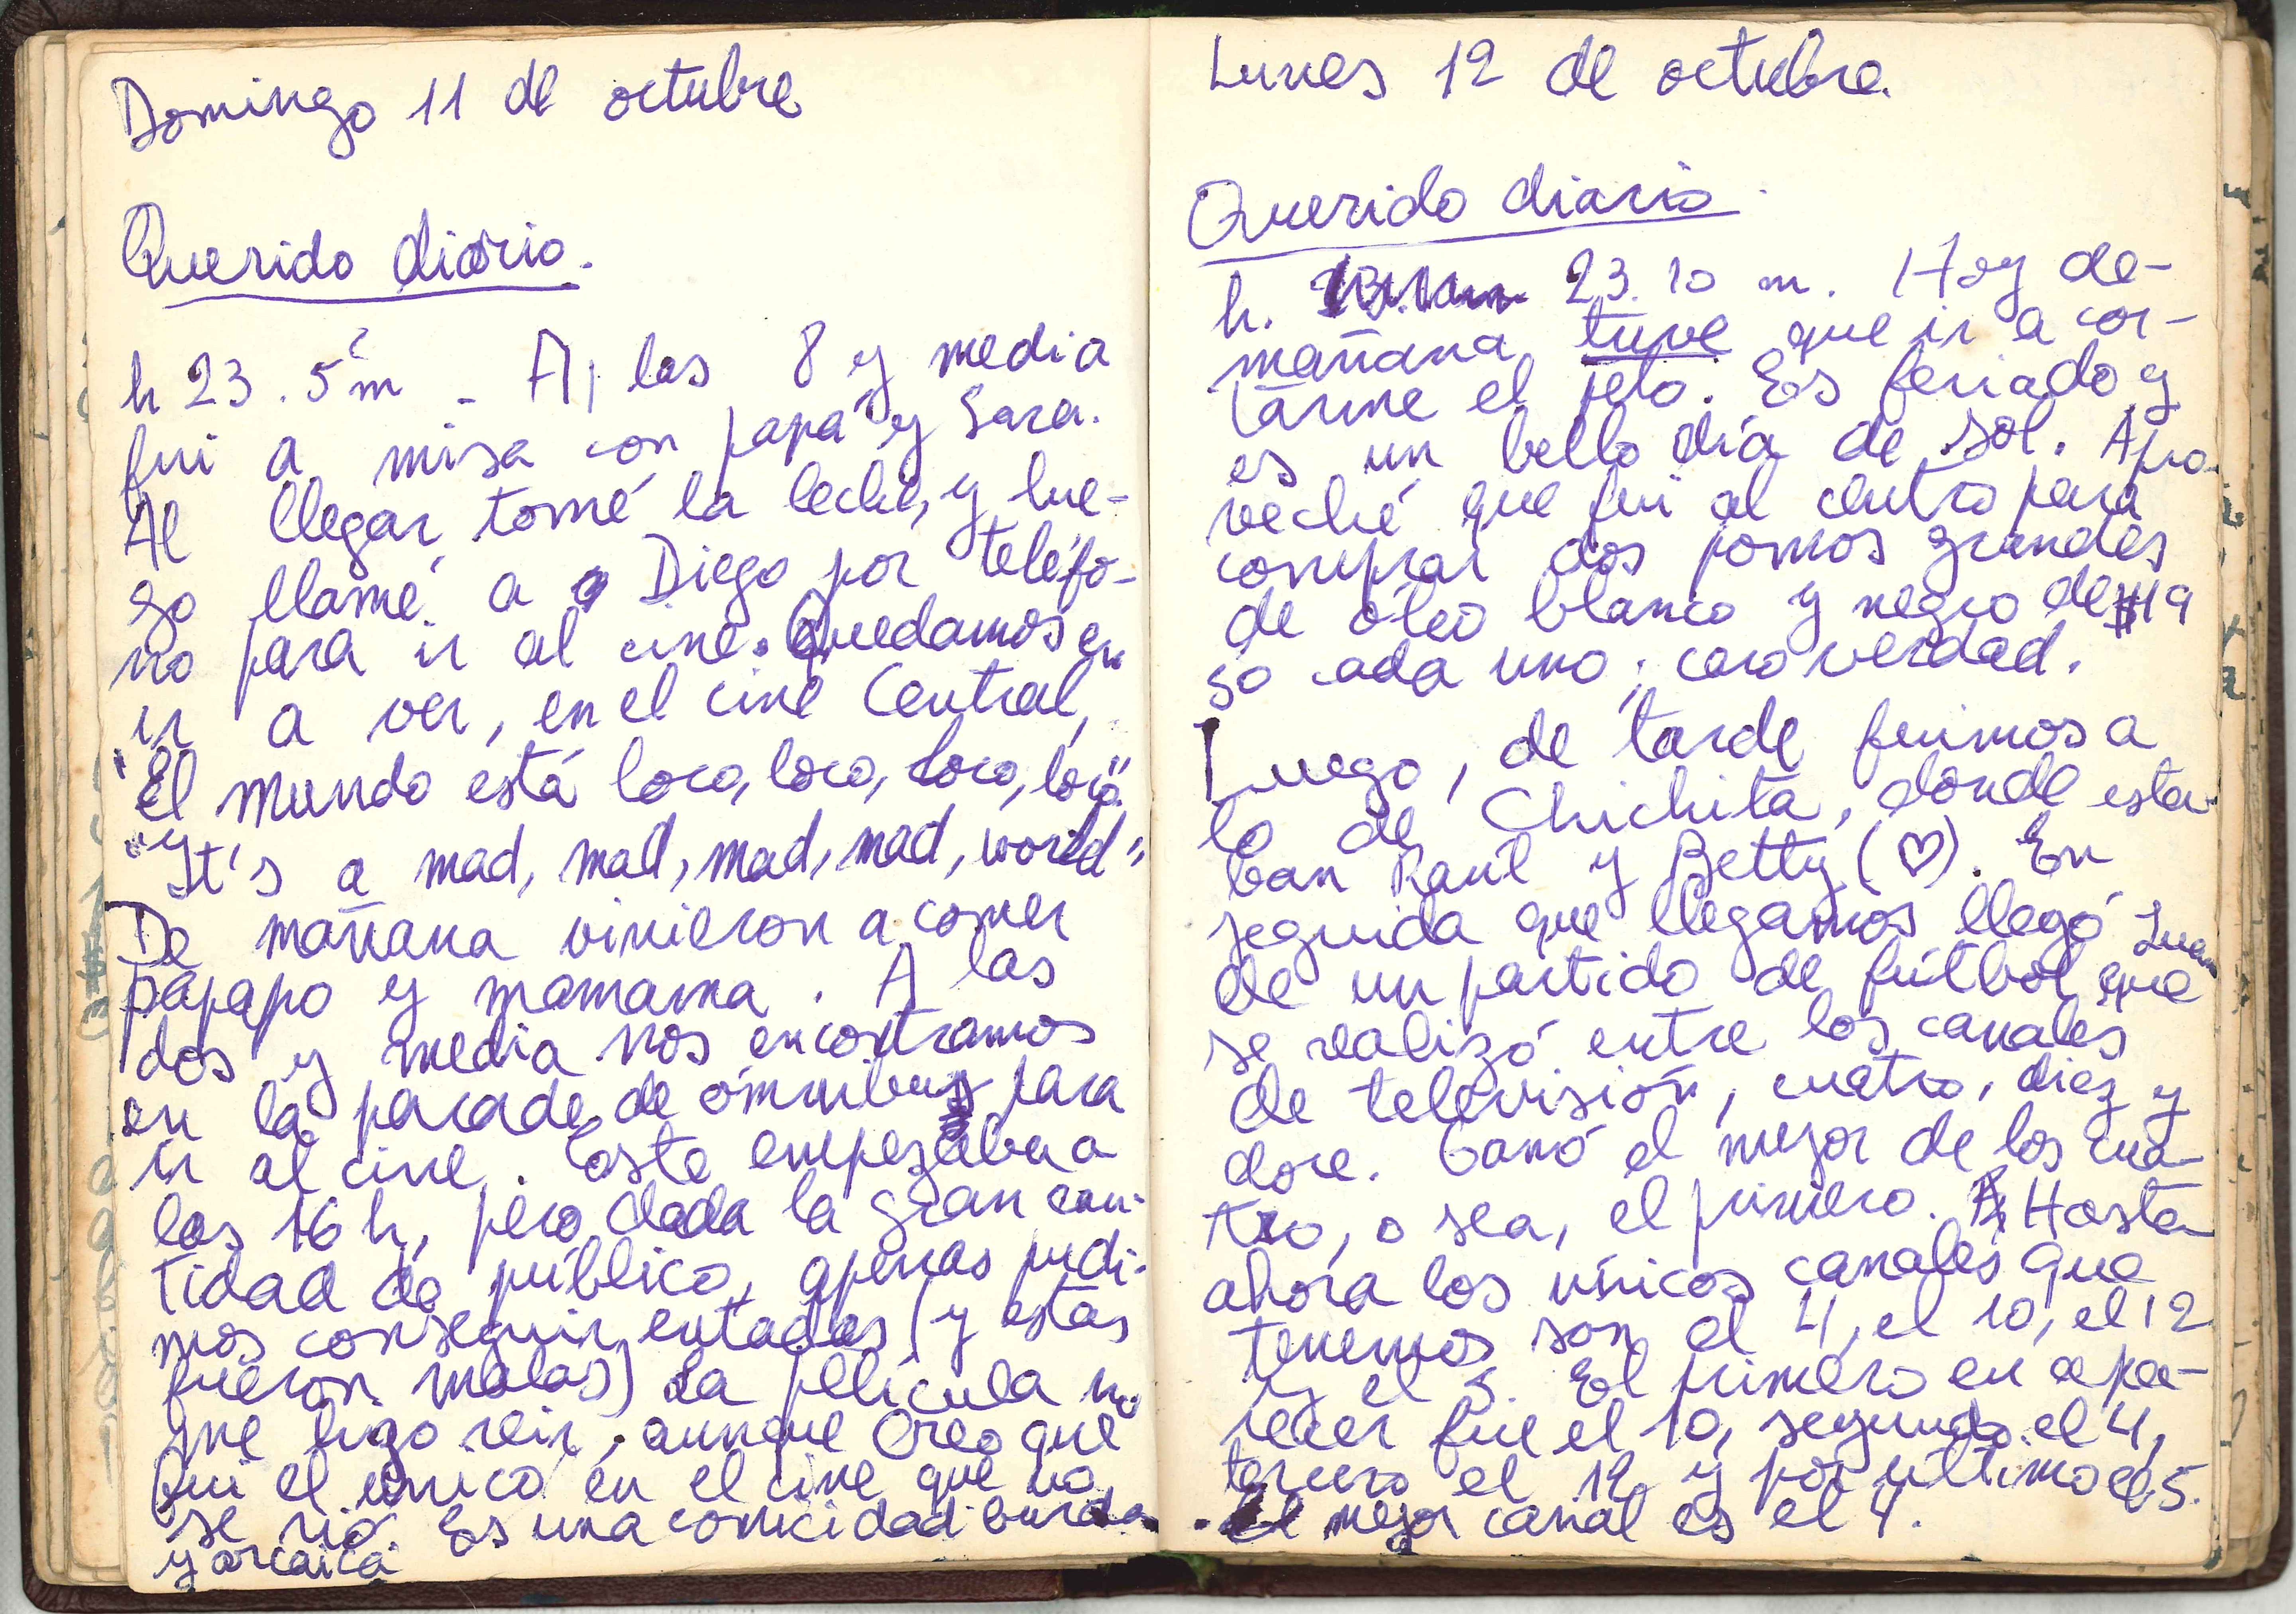 Domingo 11 de octubre
Querido diario.
h 23.5 m - A las 8 y media
fui a misa con papá y Sara.
Al llegar, tomé la leche, y lue-
go llamé a Diego por teléfo-
no para ir al cine. Quedamos en
ir a ver, en el cine Central,
"El mundo está loco, loco, loco, loco"
"It's a mad, mad, mad, mad, world".
De mañana vinieron a comer
papapo y mamama. A las
dos y media nos encontramos
en la parada de ómnibus para
ir al cine. Este empezaba a
las 16 h, pero dada la gran can-
tidad de público, apenas pudi-
mos conseguir entadas (y estas
fueron malas) La película no
me hizo reir, aunque creo que
fui el único en el cine que no
se rió. Es una comicidad burda
y arcaica
Lunes 12 de octubre.
Querido diario
h. 23.10 m. Hoy de-
mañana tuve que ir a cor-
tarme el pelo. Es feriado y
es un bello día de sol. Apro-
veché que fui al centro para
comprar dos pomos grandes
de óleo blanco y negro de $19
so cada uno; caro verdad.
Luego, de tarde fuimos a
lo de Chichita, donde esta-
ban Raúl y Betty (♡). En
seguida que llegamos llegó Juan
de un partido de fútbol que
se realizó entre los canales
de televisión, cuatro, diez y
doce. Ganó el mejor de los cua-
tro, o sea, el primero. Hasta
ahora los únicos canales que
tenemos son el 4, el 10, el 12
y el 5. El primero en apa-
recer fue el 10, segundo el 4,
tercero el 12 y por último el 5.
El mejor canal es el 4.